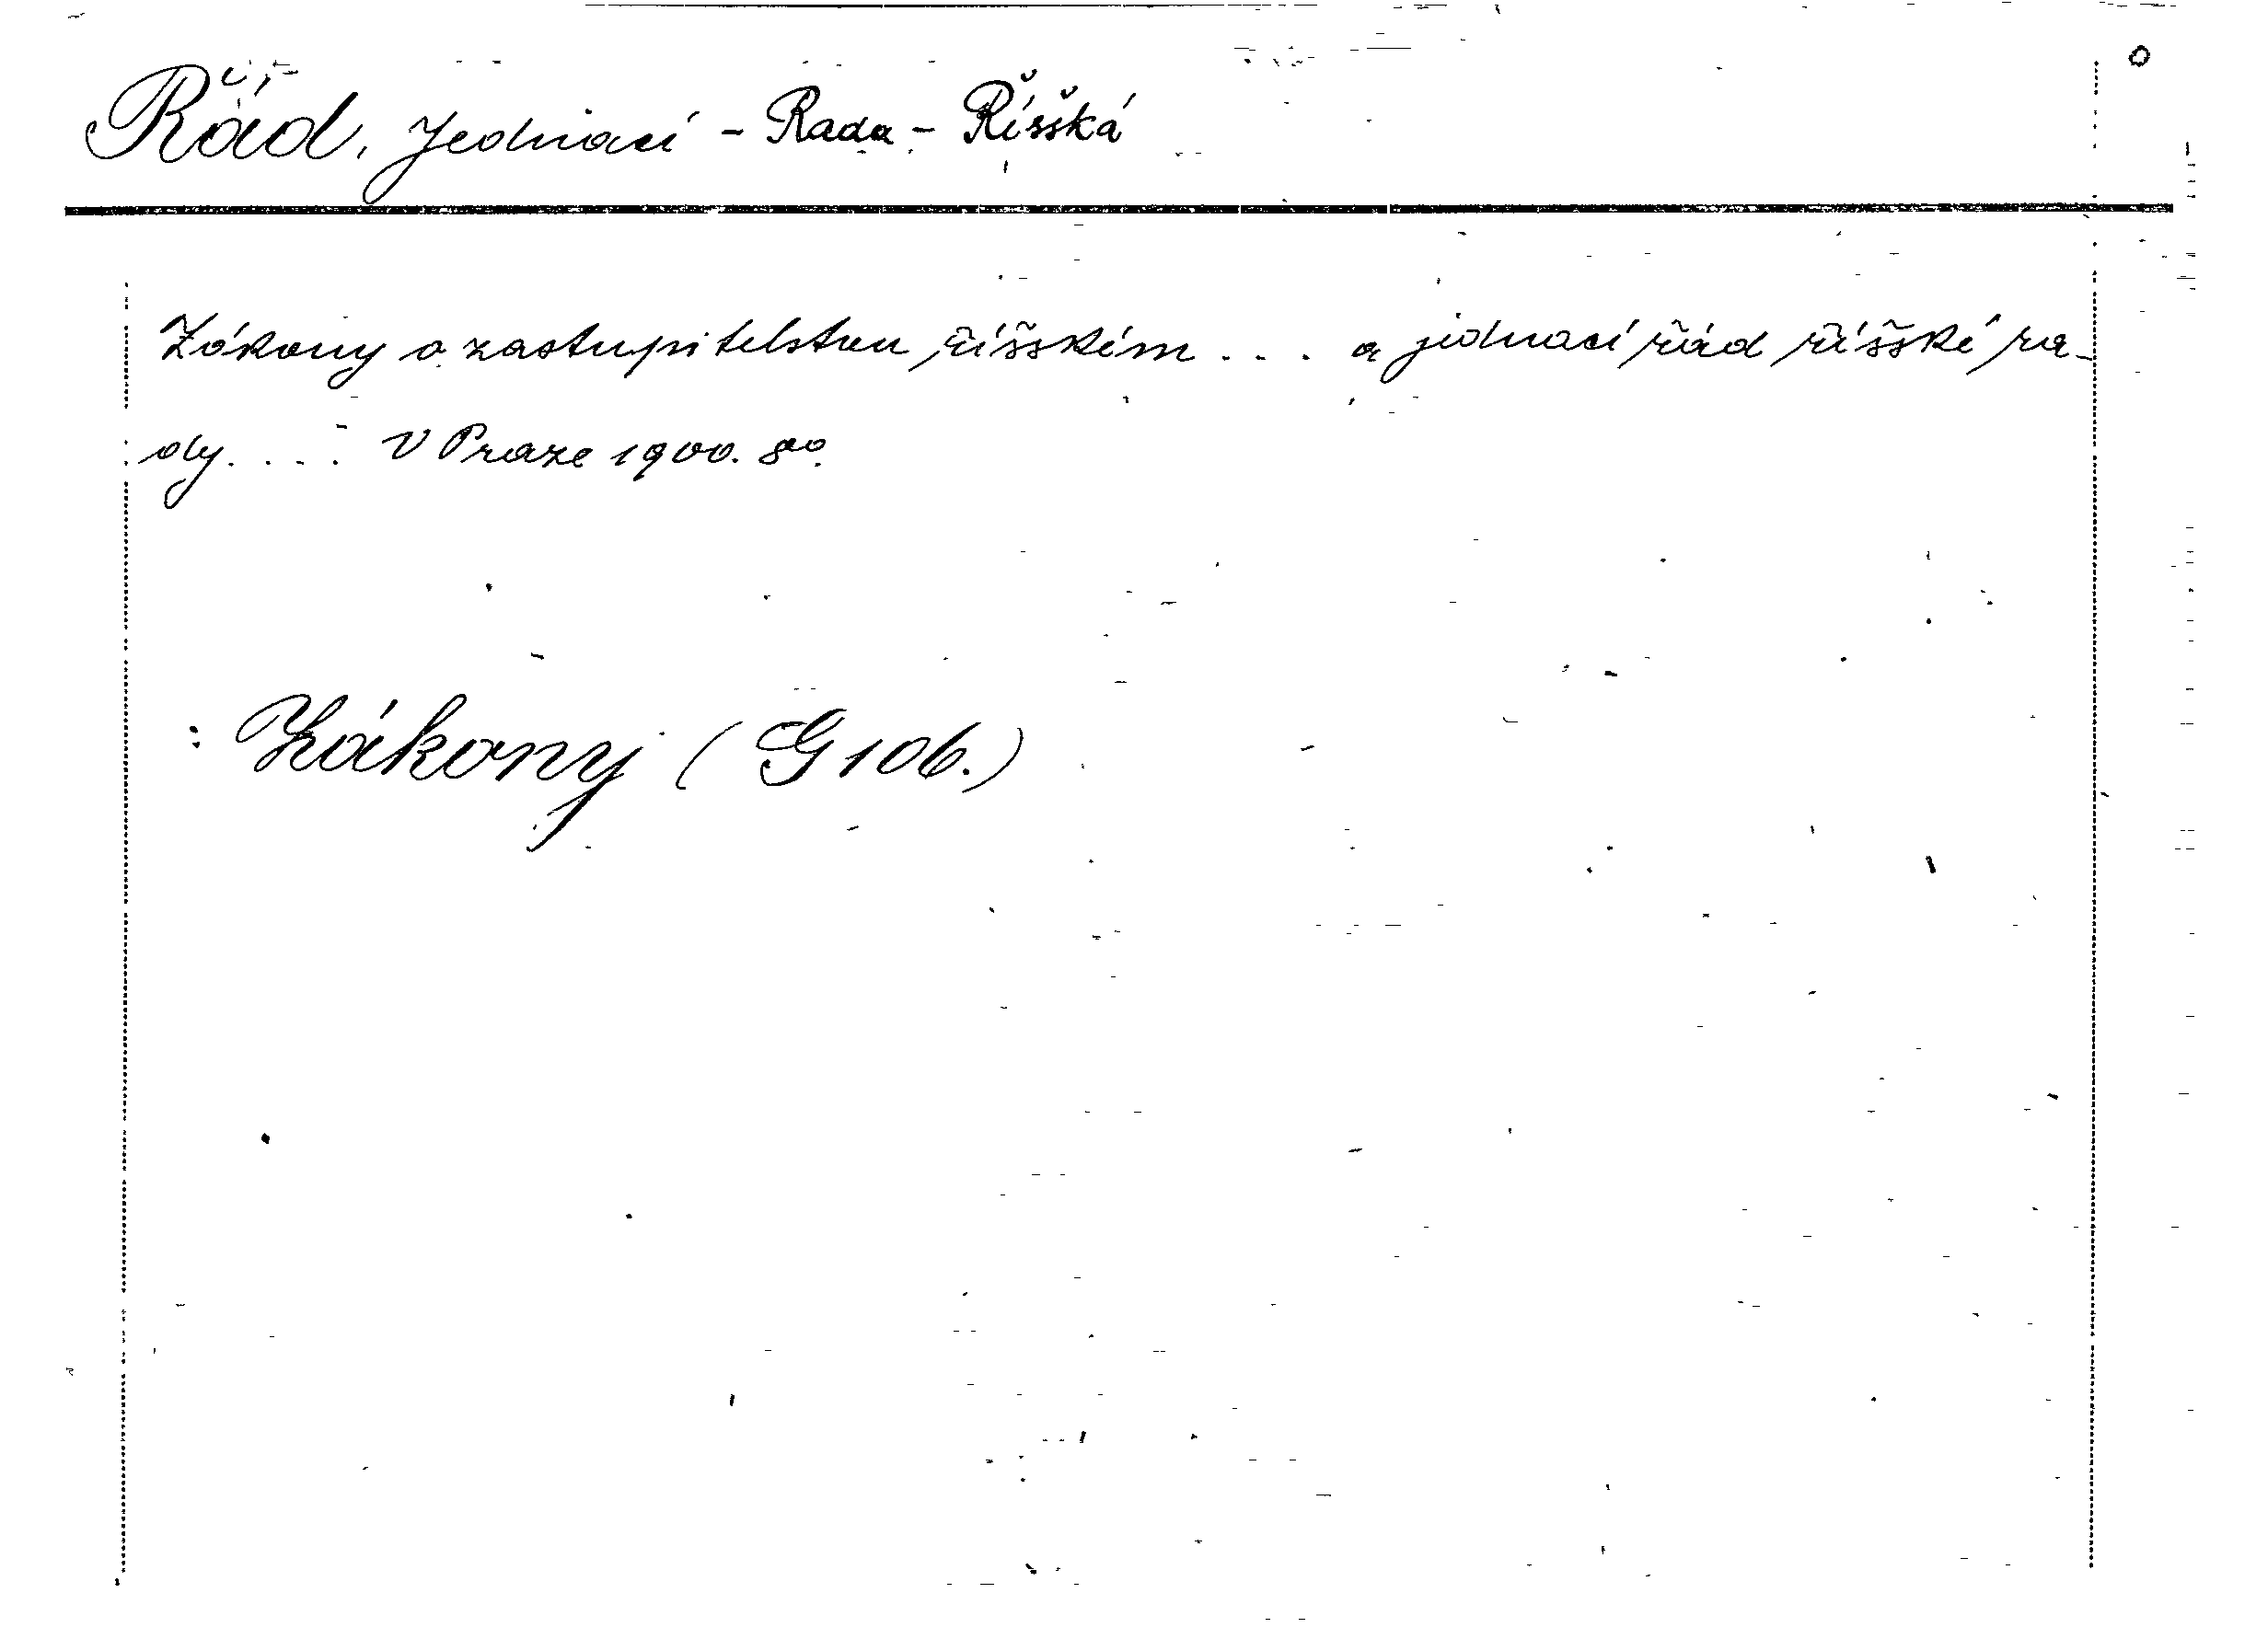 Řád, Jednací - Rada - Říšská
Zákony o zastupitelstvu říšském ... a jednací řád říšské ra-
dy.... V Praze 1900. 8vo.
: Zákony (G 106.)